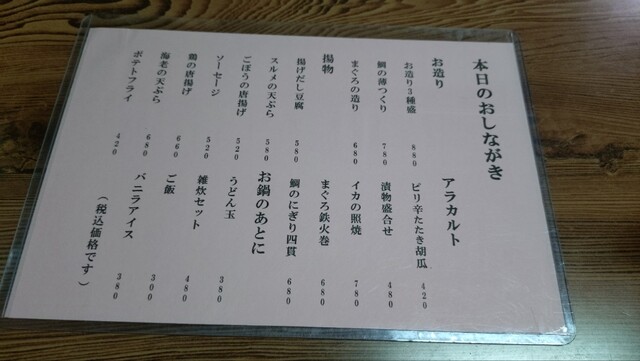 本日のおしながき
お造り
お造り3種盛 880
鯛の薄つくり 780
まぐろの造り 680
揚物
揚げだし豆腐 580
スルメの天ぷら 580
ごぼうの唐揚げ 520
ソーセージ 520
鶏の唐揚げ 660
海老の天ぷら 680
ポテトフライ 420
アラカルト
ピリ辛たたき胡瓜 420
漬物盛合せ 480
イカの照焼 780
まぐろ鉄火巻 680
鯛のにぎり四貫 680
お鍋のあとに
うどん玉 380
雑炊セット 480
ご飯 300
バニラアイス 380
(税込価格です)